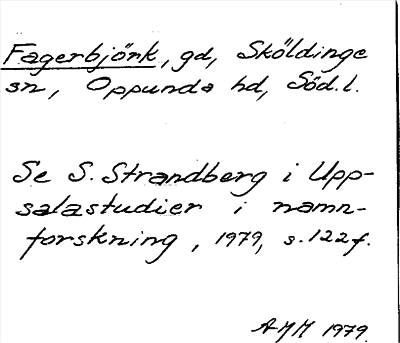 Fagerbjörk, gd, Sköldinge
sn, Oppunda hd, Söd.l.
Se S. Strandberg i Upp-
salastudier i namn-
forskning, 1979, s.122f.
AMM 1979.